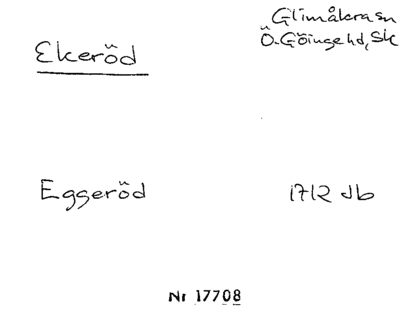 Glimåkra sn
Ö. Göinge hd, Sk
Ekeröd
Eggeröd
1712 db
Nr 17708